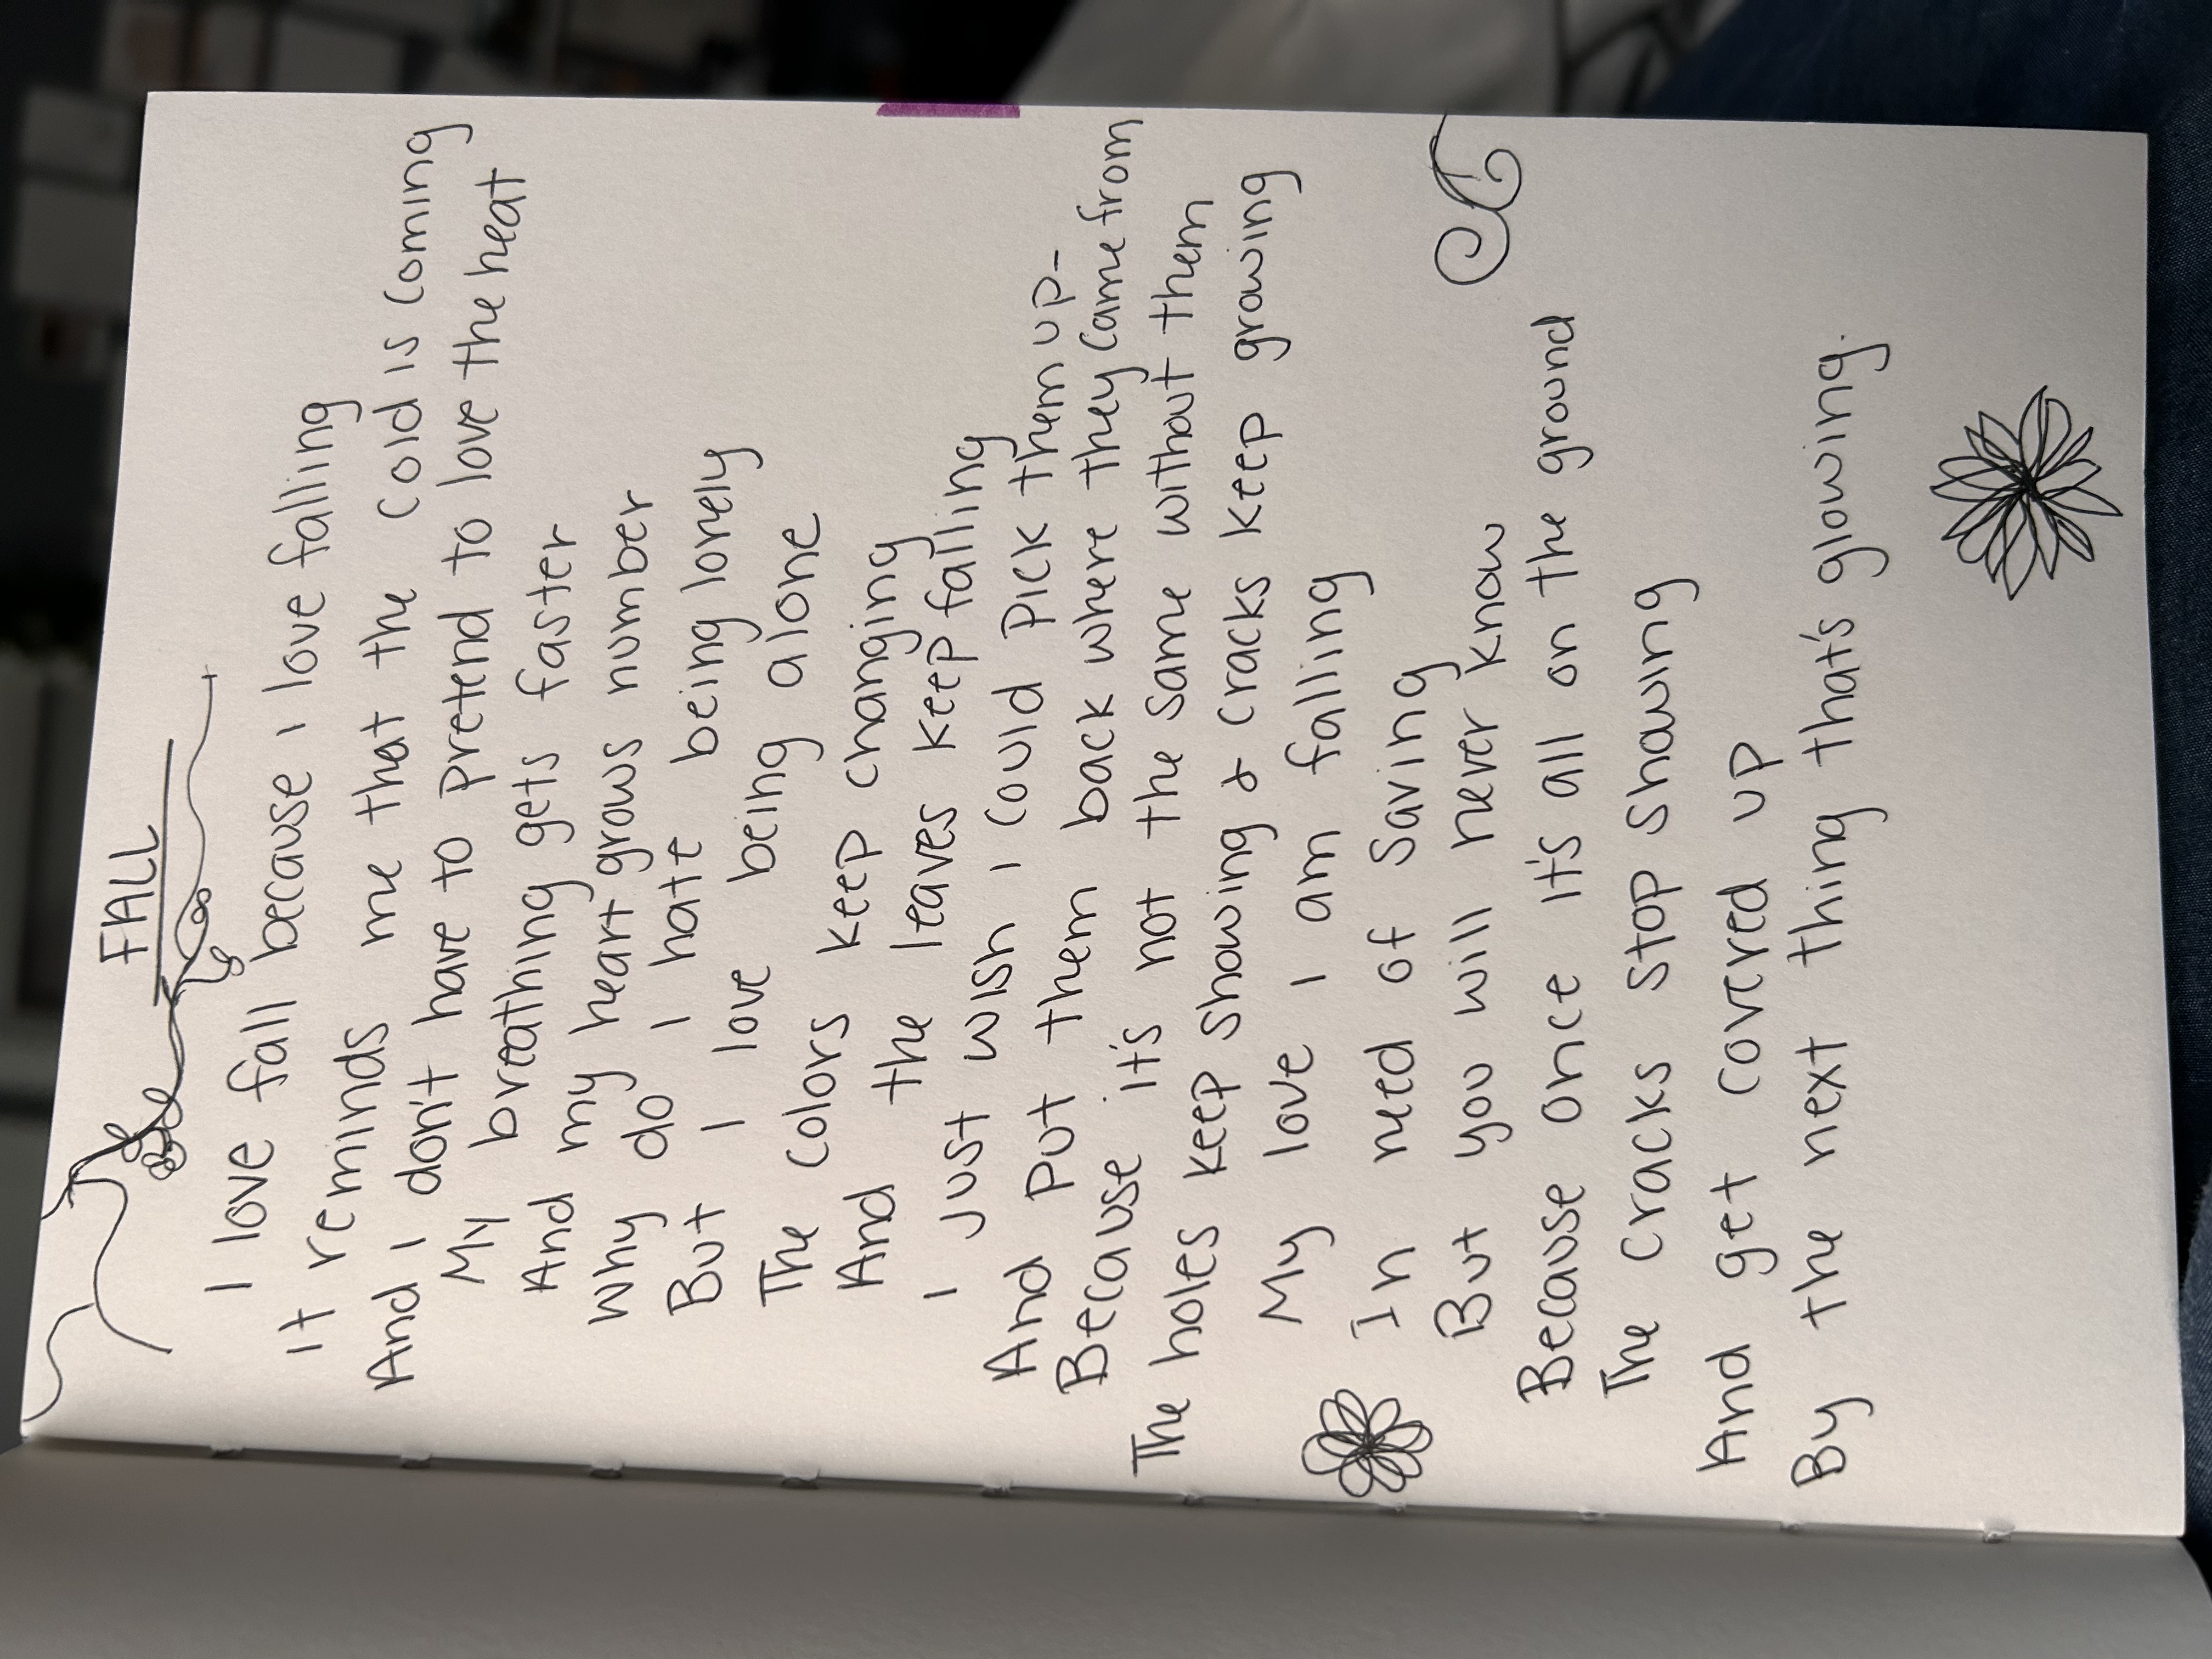 FALL
I love fall because I love falling
It reminds me that the cold is coming
And I don't have to pretend to love the heat
My breathing gets faster
And my heart grows number
Why do I hate being lonely
But I love being alone
The colors keep changing
And the leaves keep falling
I just wish I could pick them up-
And put them back where they came from
Because it's not the same without them
The holes keep showing & cracks keep growing
My love I am falling
In need of saving
But you will never know
Because once it's all on the ground
The cracks stop showing
And get covered up
By the next thing that's glowing.